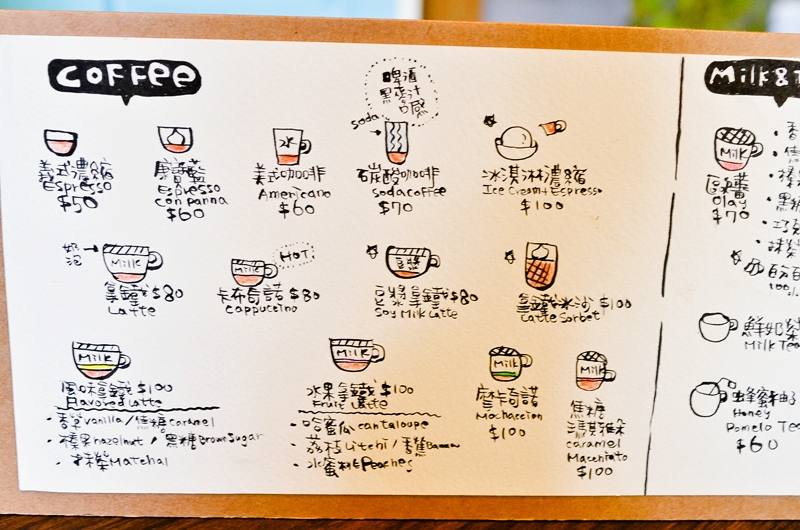 COFFEE
啤酒
黑麥汁
口感
soda
水
義式濃縮
Espresso
$50
康寶藍
Espresso
con panna
$60
美式咖啡
Americano
$60
碳酸咖啡
soda coffee
$70
冰淇淋濃縮
Ice Cream + Espresso
$100
奶泡
Milk
拿鐵 $80
Latte
HOT
Milk
卡布奇諾 $80
cappuccino
豆漿
豆漿拿鐵 $80
Soy Milk Latte
拿鐵冰沙 $100
Latte Sorbet
Milk
風味拿鐵 $100
Flavored Latte
香草 vanilla / 焦糖 caramel
榛果 hazelnut / 黑糖 Brown Sugar
抹茶 Matchal
Milk
水果拿鐵 $100
Fruit Latte
哈蜜瓜 cantaloupe
荔枝 Litchi / 香蕉 Banana
水蜜桃 Peaches
Milk
摩卡奇諾
Mochaccion
$100
Milk
焦糖
瑪琪雅朵
caramel
Macchiato
$100
Milk & T
Milk
Olay
$70
鮮奶茶
Milk Tea
蜂蜜柚
Honey
Pomelo Tea
$60